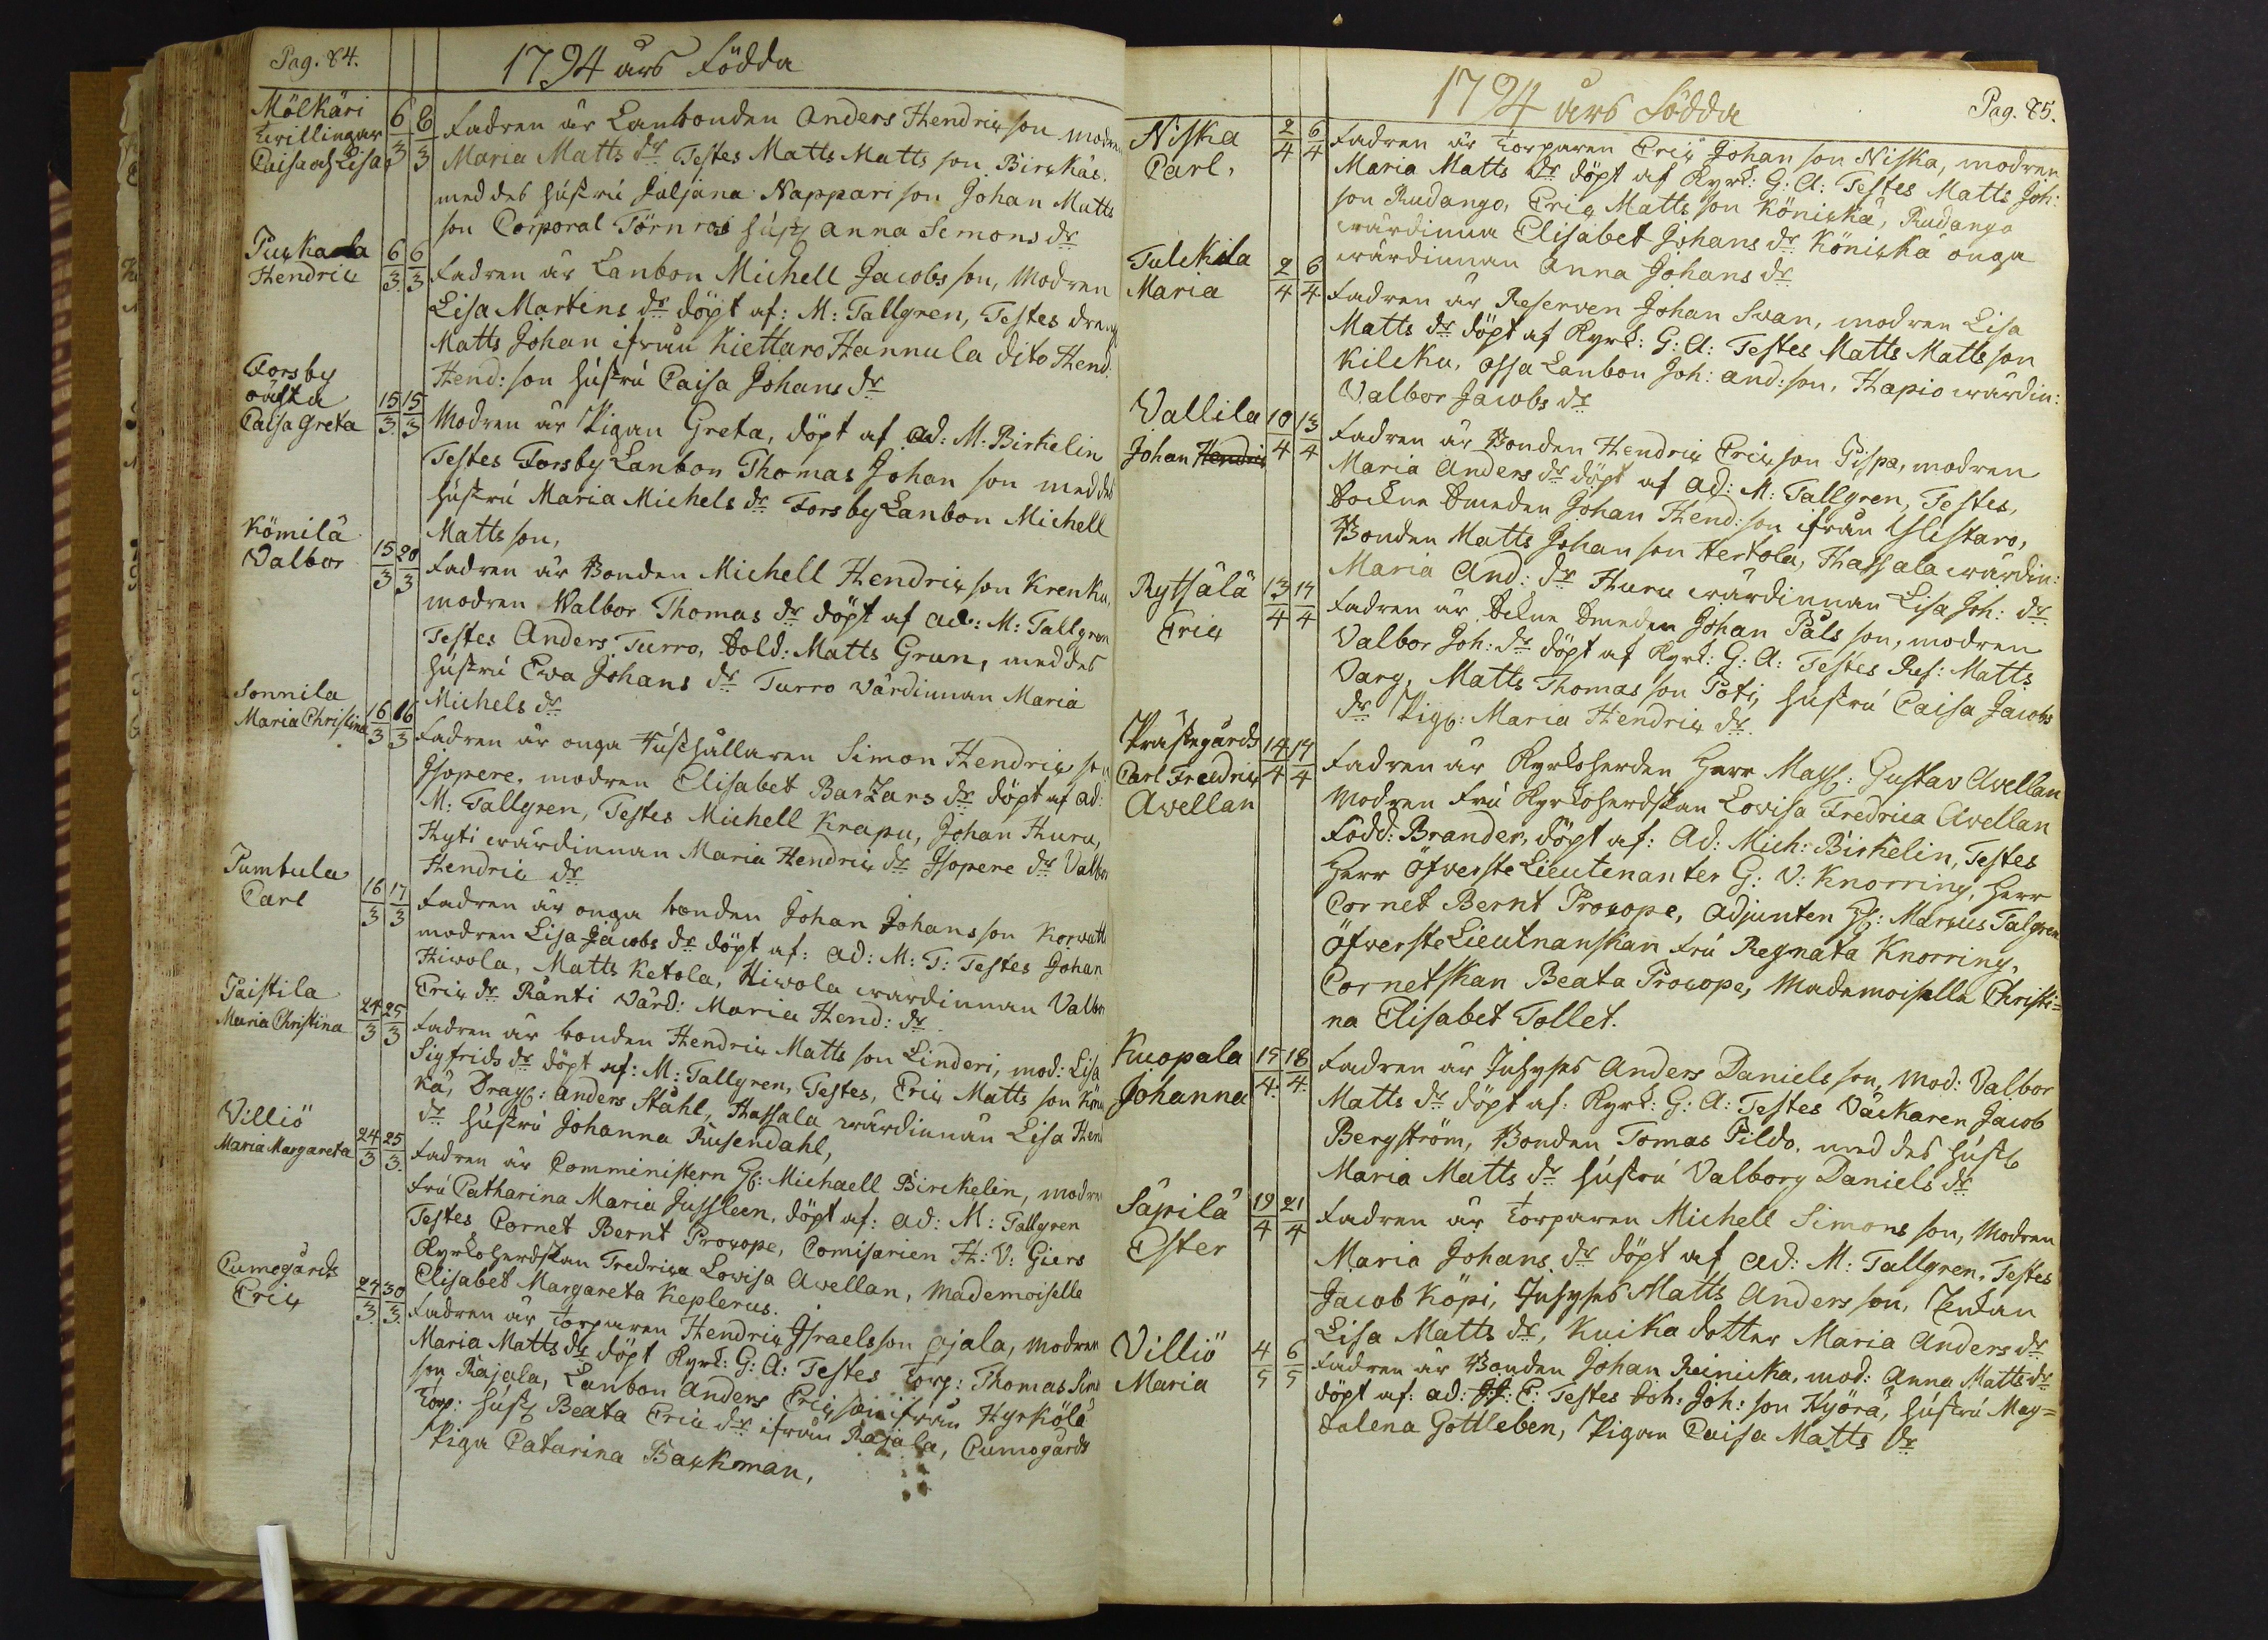 Pag. 84.
1794 års Födda
Mölkäri
Tvillingar
Caisa och Lisa
6/3 6/3
Fadren är Lanbonden Anders Hendrix son modren
Maria Matts dr Testes Matts Matts son Birckäs.
med des hustru Juljana Nappari son Johan Matts
son Corporal Törnros hust Anna Semons dr
Puckala
Hendric
6/3 6/3
Fadren är Lanbon Michell Jacobs son, Modren
Lisa Martins dr döpt af: M: Tallgren, Testes dreng
Matts Johan ifrån Kiettaro Hannula dito Hend:
Hend: son hustru Caisa Johans dr
Forsby
Caisa Greta
15/3 15/3
Modren är Pigan Greta, döpt af Ad: M: Birkelin
Testes Forsby Lanbon Thomas Johan son med des
hustru Maria Michels dr Forsby Lanbon Michell
Matts son,
Kömilä
Valbor
15/3 20/3
Fadren är Bonden Michell Hendrix son Krenku,
modren Walbor Thomas dr döpt af Ad: M: Tallgren
Testes Anders Turro, Sold: Matts Grun, med des
hustru Ewa Johans dr Turro Värdinnan Maria
Michels dr
Sonnila
Maria Christina
16/3 16/3
Fadren är unga Hushållaren Simon Hendrix son
Isopere, modren Elisabet Barzars dr döpt af Ad:
M: Tallgren, Testes Michell Krapu, Johan Huru,
Hyti wärdinnan Maria Hendrix dr Isopere dr Valbor
Hendric dr
Pumbula
Carl
16/3 17/3
Fadren är unga bonden Johan Johansson Korvatt
modren Lisa Jacobs dr döpt af: Ad: M: T: Testes Johan
Hiwola, Matts Ketola, Hiwola wärdinnan Valbor
Eric dr Ränti Värd: Maria Hend: dr
Paistila
Maria Christina
24/3 25/3
Fadren är bonden Hendrix Matts son Linderi, mod: Lisa
Sigfrids dr döpt af: M: Tallgren, Testes, Eric Matts son Kön
kä, Drag: Anders Ståhl, Hassala wärdinnan Lisa Hend
dr hustru Johanna Rusendahl,
Villiö
Maria Margareta
24/3 25/3.
Fadren är Comministern H: Michaell Birckelin, modren
fru Catharina Maria Jussleen, döpt af: Ad: M: Tallgren
Testes Cornet Bernt Procope, Comisarien H: V: Giers
Kyrkoherdskan Fredrica Lovisa Avellan, Mademoiselle
Elisabet Margareta Keplerus.
Cumogårds
Eric
24/3. 30/3.
Fadren är Torparen Hendrix Israelsson Ojala, modren
Maria Matts dr döpt Kyrk: G: A: Testes Torp: Thomas Sim
son Rajala, Lanbon Anders Eric son ifrån Hyrkölä
Torp: hust Beata Eric dr ifrån Rajala, Cumogårds
Piga Catarina Backman,
1794 års Födda
Pag. 85.
Niska
Carl,
2/4 6/4
Fadren är Torparen Eric Johan son Niska, modren
Maria Matts dr döpt af Kyrk: G: A: Testes Matts Joh:
son Rudango, Eric Matts son Könickä, Rudango
wärdinna Elisabet Johans dr Könickä unga
wärdinnan Anna Johans dr
Tulckila
Maria
2/4 6/4
Fadren är Reserven Johan Svan, modren Lisa
Matts dr döpt af Kyrk: G: A: Testes Matts Matts son
Kilcku, Ossa Lanbon Joh: And: son, Hapio wärdin:
Valbor Jacobs dr
Vallila
Johan Hendric
10/4 13/4
Fadren är Bonden Hendrix Eric son Pispa, modren
Maria Anders dr döpt af Ad: M: Tallgren, Testes,
Sockne Smeden Johan Hend: son ifrån Ylistaro,
Bonden Matts Johan son Hertola, Hassala wärdin:
Maria And: dr Huru wärdinnan Lisa Joh: dr
Rytsälä
Eric
13/4 14/4
Fadren är Sckne Smeden Johan Påls son, modren
Valbor Joh: dr döpt af Kyrk: G: A: Testes Res: Matts
Varg, Matts Thomas son Poti, hustru Caisa Jacobs
dr Pig: Maria Hendrix dr
Prästegårds
Carl Freedric
Avellan
14/4 14/4
Fadren är Kyrkoherden Herr Mag: Gustav Avellan
Modren fru Kyrkoherdskan Lovisa Fredrica Avellan
Född: Brander, döpt af: Ad: Mich: Birkelin, Testes
Herr Öfverste Lieutenanter G: V: Knorring, Herr
Cornet Bernt Procope, Adjunten H: Marcus Talgren
Öfverste Lieutnanskan fru Regnata Knorring,
Cornetskan Beata Procope, Mademoiselle Christi=
na Elisabet Tollet.
Kuopala
Johanna
15/4. 18/4.
Fadren är Inhyses Anders Daniels son, Mod: Valbor
Matts dr döpt af: Kyrk: G: A: Testes Väckaren Jacob
Bergström, Bonden Tomas Pildo, med des hust
Maria Matts dr hustru Valborg Daniels dr
Säpilä
Ester
19/4 21/4
Fadren är Torparen Michell Simons son, Modren
Maria Johans dr döpt af Ad: M: Tallgren, Testes
Jacob Köpi, Inhyses Matts Anders son, Enkan
Lisa Matts dr, Kuika dotter Maria Anders dr
Villiö
Maria
4/5 6/5
Fadren är Bonden Johan Reinicka, mod: Anna Matts dr
döpt af: Ad: E: Testes Joh: son Kyörä, hustru Mag=
dalena Gottleben, Pigan Caisa Matts dr